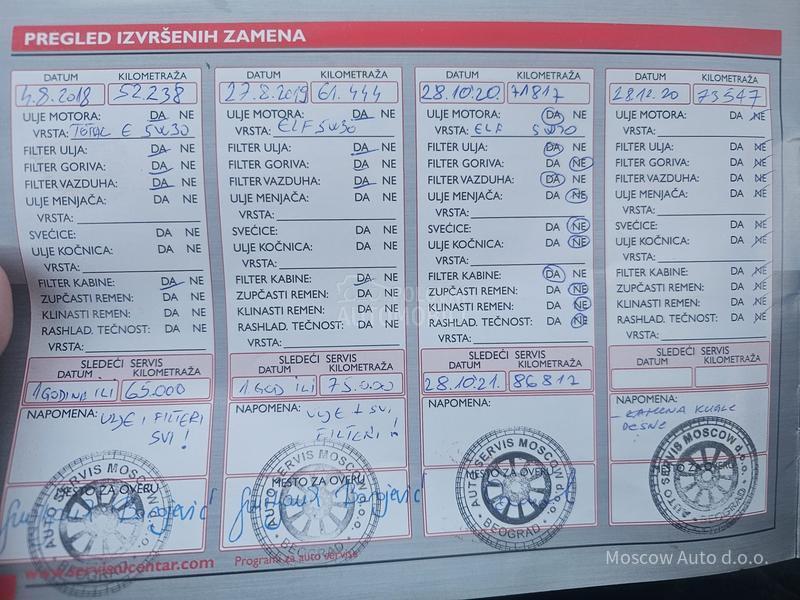 PREGLED IZVRŠENIH ZAMENA
DATUM KILOMETRAŽA
4.8.2018 52.238
ULJE MOTORA: DA NE
VRSTA: TOTAL E 5W30
FILTER ULJA: DA NE
FILTER GORIVA: DA NE
FILTER VAZDUHA: DA NE
ULJE MENJAČA: DA NE
VRSTA:
SVEĆICE: DA NE
ULJE KOČNICA: DA NE
VRSTA:
FILTER KABINE: DA NE
ZUPČASTI REMEN: DA NE
KLINASTI REMEN: DA NE
RASHLAD. TEČNOST: DA NE
VRSTA:
SLEDEĆI SERVIS
DATUM KILOMETRAŽA
1 GODINA ILI 65.000
NAPOMENA: ULJE I FILTERI
SVI !
MESTO ZA OVERU
AUTO SERVIS MOSCOW
DATUM KILOMETRAŽA
27.8.2019 61.444
ULJE MOTORA: DA NE
VRSTA: ELF 5W30
FILTER ULJA: DA NE
FILTER GORIVA: DA NE
FILTER VAZDUHA: DA NE
ULJE MENJAČA: DA NE
VRSTA:
SVEĆICE: DA NE
ULJE KOČNICA: DA NE
VRSTA:
FILTER KABINE: DA NE
ZUPČASTI REMEN: DA NE
KLINASTI REMEN: DA NE
RASHLAD. TEČNOST: DA NE
VRSTA:
SLEDEĆI SERVIS
DATUM KILOMETRAŽA
1 GOD ILI 75.000
NAPOMENA: ULJE I SVI
FILTERI !
MESTO ZA OVERU
AUTO SERVIS MOSCOW
BEOGRAD
DATUM KILOMETRAŽA
28.10.20. 71817
ULJE MOTORA: DA NE
VRSTA: ELF 5W30
FILTER ULJA: DA NE
FILTER GORIVA: DA NE
FILTER VAZDUHA: DA NE
ULJE MENJAČA: DA NE
VRSTA:
SVEĆICE: DA NE
ULJE KOČNICA: DA NE
VRSTA:
FILTER KABINE: DA NE
ZUPČASTI REMEN: DA NE
KLINASTI REMEN: DA NE
RASHLAD. TEČNOST: DA NE
VRSTA:
SLEDEĆI SERVIS
DATUM KILOMETRAŽA
28.10.21. 86817
NAPOMENA:
MESTO ZA OVERU
AUTO SERVIS MOSCOW d.o.o.
BEOGRAD
DATUM KILOMETRAŽA
28.12.20 73547
ULJE MOTORA: DA NE
VRSTA:
FILTER ULJA: DA NE
FILTER GORIVA: DA NE
FILTER VAZDUHA: DA NE
ULJE MENJAČA: DA NE
VRSTA:
SVEĆICE: DA NE
ULJE KOČNICA: DA NE
VRSTA:
FILTER KABINE: DA NE
ZUPČASTI REMEN: DA NE
KLINASTI REMEN: DA NE
RASHLAD. TEČNOST: DA NE
VRSTA:
SLEDEĆI SERVIS
DATUM KILOMETRAŽA
NAPOMENA:
- ZAMENA KUGLE
DESNE
MESTO ZA OVERU
AUTO SERVIS MOSCOW d.o.o.
BEOGRAD
www.servisnicentar.com
Programi za auto servise
Moscow Auto d.o.o.